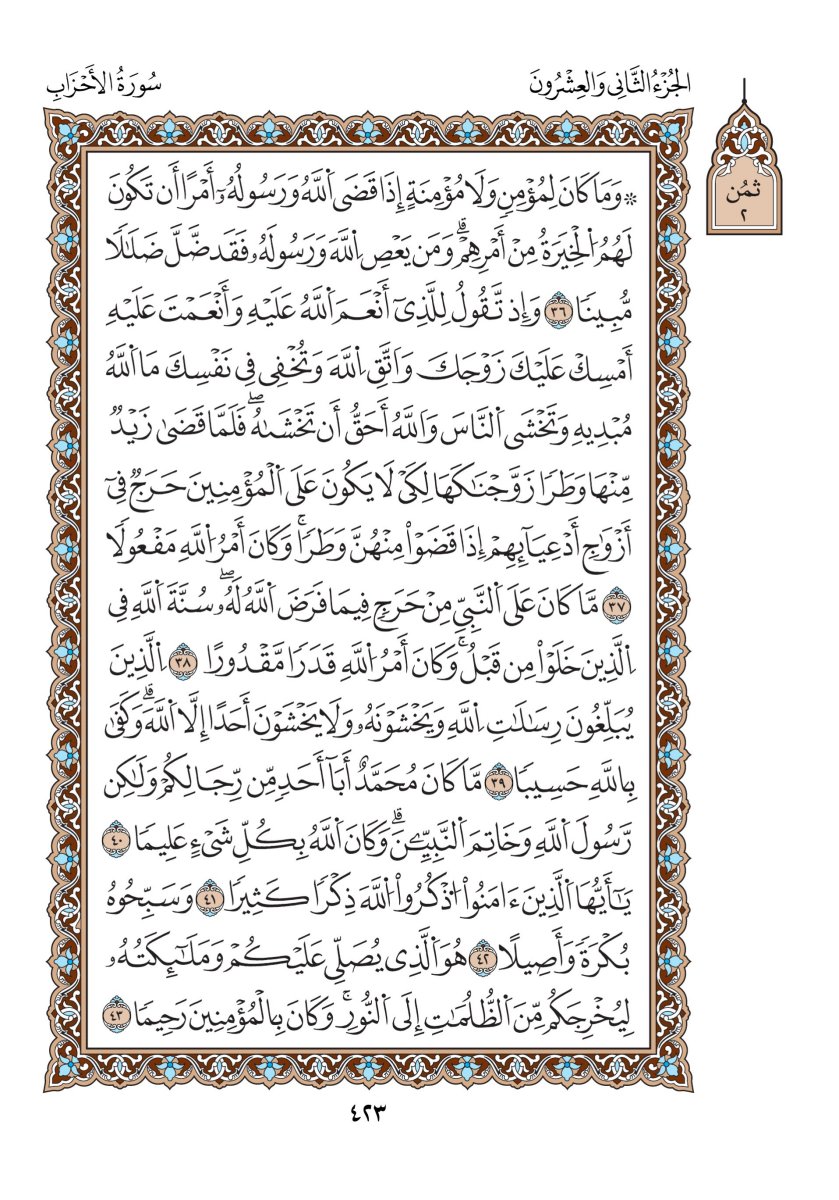 الجُزْءُ الثَّانِى وَالعِشْرُونَ
سُورَةُ الأَحْزَابِ
ثُمُن
٢
۞ وَمَا كَانَ لِمُؤْمِنٍ وَلَا مُؤْمِنَةٍ إِذَا قَضَى ٱللَّهُ وَرَسُولُهُۥٓ أَمْرًا أَن تَكُونَ
لَهُمُ ٱلْخِيَرَةُ مِنْ أَمْرِهِمْۗ وَمَن يَعْصِ ٱللَّهَ وَرَسُولَهُۥ فَقَد ضَّلَّ ضَلَٰلًا
مُّبِينًا ٣٦ وَإِذ تَّقُولُ لِلَّذِىٓ أَنْعَمَ ٱللَّهُ عَلَيْهِ وَأَنْعَمْتَ عَلَيْهِ
أَمْسِكْ عَلَيْكَ زَوْجَكَ وَٱتَّقِ ٱللَّهَ وَتُخْفِى فِى نَفْسِكَ مَا ٱللَّهُ
مُبْدِيهِ وَتَخْشَى ٱلنَّاسَ وَٱللَّهُ أَحَقُّ أَن تَخْشَىٰهُۖ فَلَمَّا قَضَىٰ زَيْدٌ
مِّنْهَا وَطَرًا زَوَّجْنَٰكَهَا لِكَىْ لَا يَكُونَ عَلَى ٱلْمُؤْمِنِينَ حَرَجٌ فِىٓ
أَزْوَٰجِ أَدْعِيَآئِهِمْ إِذَا قَضَوْا۟ مِنْهُنَّ وَطَرًاۚ وَكَانَ أَمْرُ ٱللَّهِ مَفْعُولًا
٣٧ مَّا كَانَ عَلَى ٱلنَّبِىِّ مِنْ حَرَجٍ فِيمَا فَرَضَ ٱللَّهُ لَهُۥۖ سُنَّةَ ٱللَّهِ فِى
ٱلَّذِينَ خَلَوْا۟ مِن قَبْلُۚ وَكَانَ أَمْرُ ٱللَّهِ قَدَرًا مَّقْدُورًا ٣٨ ٱلَّذِينَ
يُبَلِّغُونَ رِسَٰلَٰتِ ٱللَّهِ وَيَخْشَوْنَهُۥ وَلَا يَخْشَوْنَ أَحَدًا إِلَّا ٱللَّهَۗ وَكَفَىٰ
بِٱللَّهِ حَسِيبًا ٣٩ مَّا كَانَ مُحَمَّدٌ أَبَآ أَحَدٍ مِّن رِّجَالِكُمْ وَلَٰكِن
رَّسُولَ ٱللَّهِ وَخَاتِمَ ٱلنَّبِيِّـۧنَۗ وَكَانَ ٱللَّهُ بِكُلِّ شَىْءٍ عَلِيمًا ٤٠
يَٰٓأَيُّهَا ٱلَّذِينَ ءَامَنُوا۟ ٱذْكُرُوا۟ ٱللَّهَ ذِكْرًا كَثِيرًا ٤١ وَسَبِّحُوهُ
بُكْرَةً وَأَصِيلًا ٤٢ هُوَ ٱلَّذِى يُصَلِّى عَلَيْكُمْ وَمَلَٰٓئِكَتُهُۥ
لِيُخْرِجَكُم مِّنَ ٱلظُّلُمَٰتِ إِلَى ٱلنُّورِۚ وَكَانَ بِٱلْمُؤْمِنِينَ رَحِيمًا ٤٣
٤٢٣